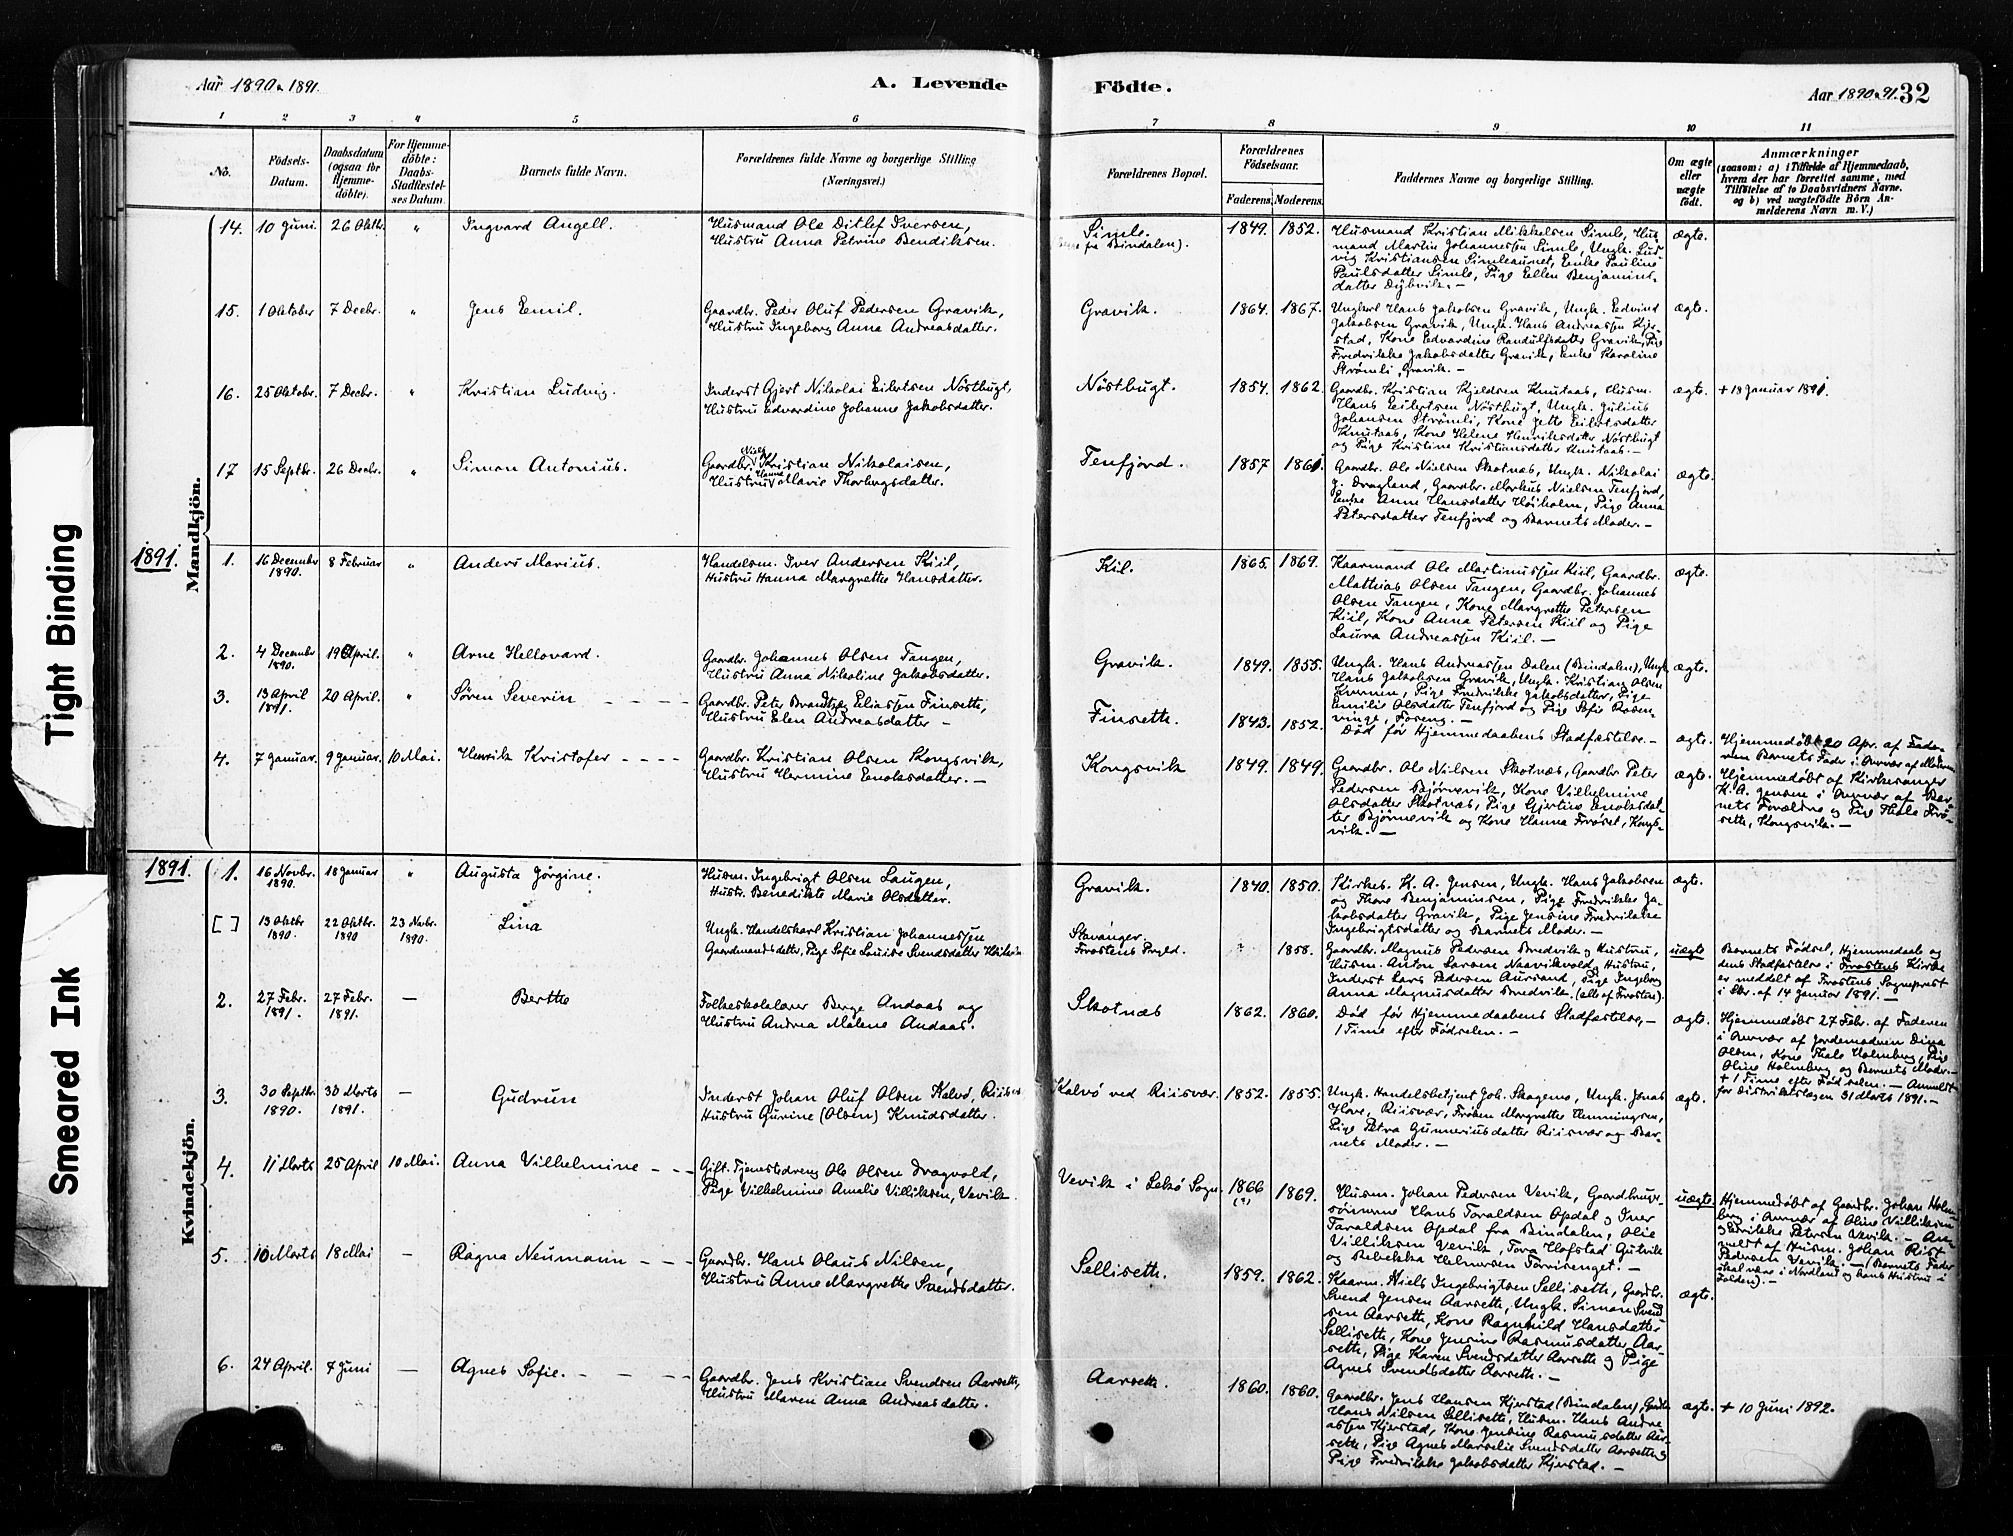 Aar 1890 & 1891.
A. Levende
Födte.
Aar 1890 & 91. 32
1 2 3 4 5 6
7 8 9 10 11
No.
Födsels-
Datum.
Daabsdatum
(ogsaa for
Hjemme-
döbte).
For Hjemme-
döbte:
Daabs-
Stadfæstel-
ses Datum.
Barnets fulde Navn.
Forældrenes fulde Navne og borgerlige Stilling
(Næringsvei.)
Forældrenes Bopæl.
Forældrenes
Födselsaar.
Faderens. Moderens.
Faddernes Navne og borgerlige Stilling.
Om ægte
eller
uægte
födt.
Anmærkninger
(saasom: a) i Tilfælde af Hjemmedaab,
hvem der har forrettet samme, med
Tilföielse af to Daabsvidners Navne.
og b) ved uægtefödte Börn An-
melderens Navn m. V.)
Mandkjön.
14. 10 Juni. 26 Oktbr. " Ingvard Angell.
Husmand Ole Ditlef Iversen,
Hustru Anna Petrine Bendiksen.
Simle.
fra Bindalen).
1849. 1852.
Husmand Kristian Mikkelsen Simle, Hus-
mand Martin Johannessen Simle, Ungk. Lud-
vig Kristiansen Simleaunet, Enke Pauline
Paulsdatter Simle, Pige Ellen Benjamins-
datter Dybvik. -
ægte.
15. 1 Oktober 7 Decbr. " Jens Emil.
Gaardbr. Peder Oluf Pedersen Gravik,
Hustru Ingeborg Anna Andreasdatter.
Gravik.
1864. 1867.
Ungkarl Hans Jakobsen Gravik, Ungk. Edvind
Jakobsen Gravik, Ungk. Hans Andreassen Kjer-
stad, Kone Edvardine Randulfsdatter Gravik, Pige
Fredrikke Jakobsdatter Gravik, Enke Karoline
Strömli, Gravik. -
ægte.
16. 25 Oktobr. 7 Decbr. " Kristian Ludvig.
Inderst Gjert Nikolai Eilertsen Nöstbugt,
Hustru Edvardine Johanne Jakobsdatter.
Nöstbugt.
1854. 1862.
Gaardbr. Kristian Kjeldsen Knutaas, Husm.
Hans Eilertsen Nöstbugt, Ungk. Julius
Johansen Strömli, Kone Jette Eilertsdatter
Knutaas, Kone Helene Henriksdatter Nöstbugt
og Pige Kristine Kristiansdatter Knutaas. -
ægte. + 18 Januar 1891.
17 15 Septbr. 26 Decbr. " Simon Antonius.
Niels
Gaardbr. Kristian Nikolaisen,
Hanna
Hustru Marie Thorbergsdatter.
Tenfjord.
1857 1861.
Gaardbr. Ole Nielsen Skotnæs, Ungk. Nikolai
J. Dragland, Gaardbr. Markus Nielsen Tenfjord,
Enke Anne Hansdatter Höiholm, Pige Anna
Petersdatter Tenfjord og Barnets Moder. -
ægte.
1891.
1. 16 December
1890. 8 Februar " Anders Marius.
Handelsm. Iver Andersen Kiil,
Hustru Hanna Margrethe Hansdatter.
Kil.
1865. 1869.
Kaarmand Ole Martinussen Kiil, Gaardbr.
Mathias Olsen Tangen, Gaardbr. Johannes
Olsen Tangen, Kone Margrethe Petersen
Kiil, Kone Anna Petersen Kiil og Pige
Laura Andreassen Kiil. -
ægte.
2. 4 December
1890. 19 April. " Arne Hellovard.
Gaardbr. Johannes Olsen Tangen,
Hustru Anna Nikoline Jakobsdatter.
Gravik.
1849. 1855.
Ungk. Hans Andreassen Dalen (Bindalen), Ungk.
Hans Jakobsen Gravik, Ungk. Kristian Olsen
Kvernen, Pige Fredrikke Jakobsdatter, Pige
Emilie Olsdatter Tenfjord og Pige Sofie Rosen-
vinge, Foseng. -
ægte.
3. 13 April
1891. 20 April. " Sören Severin
Gaardbr. Peter Brandtzeg Eliassen Finseth,
Hustru Elen Andreasdatter -
Finseth.
1843. 1852.
Död för Hjemmedaabens Stadfæstelse. -
ægte.
Hjemmedöbt 20 Apr. af Fade-
ren Barnets Fader i Overvær af Moderen
4. 7 Januar. 9 Januar. 10 Mai. Henrik Kristofer
Gaardbr. Kristian Olsen Kongsvik,
Hustru Hermine Enoksdatter. -
Kongsvik
1849. 1849.
Gaardbr. Ole Nilsen Skotnæs, Gaardbr Peter
Pedersen Bjørnevik, Kone Vilhelmine
Olsdatter Skotnæs, Pige Gjertine Enoksdat-
ter Bjørnevik og Kone Hanna Fröset, Kongs-
vik. -
ægte.
Hjemmedöbt af Kirkesanger
K. A. Jensen i Overvær af Bar-
nets Forældre og Pige Thale Frö-
seth, Kongsvik. -
Kvindekjön.
1891.
1. 16 Novbr.
1890. 18 Januar " Augusta Jörgine.
Husm. Ingebrigt Olsen Laugen,
Hustr. Benedikte Marie Olsdatter.
Gravik.
1840. 1850.
Kirkes. K. A. Jensen, Ungk. Hans Jakobsen
og Thore Benjaminsen, Pige Fredrikke Ja-
kobsdatter Gravik, Pige Jensine Fredrikke
Ingebrigtsdatter og Barnets Moder. -
ægte.
[ ] 13 Oktbr
1890. 22 Oktbr.
1890 23 Novbr.
1890. Lina
Ungk. Handelskarl Kristian Johannessen
Gaardmandsdatter, Pige Sofie Louise Svendsdatter
Stavanger.
Frostens Prgld.
1858.
Gaardbr. Magnus Pedersen Bredvik og Hustru,
Husm. Anton Larsen Naavikvold, Hustru,
Inderst Lars Pedersen Aursand, Pige Ingeborg
Anna Magnusdatter Bredvik. (alle af Frosten).
uægte
Barnets Födsel, Hjemmedaab og
dens Stadfæstelse i Frostens Kirke
er meddelt af Frostens Sogneprest
i Skr. af 14 Januar 1891. -
2. 27 Febr.
1891. 27 Febr.
1891. - Berthe
Folkeskolelærer Berge Andaas og
Hustru Andrea Malene Andaas.
Skotnæs
1862. 1860.
Död för Hjemmedaabens Stadfæstelse, -
1 Time efter Födselen. -
ægte.
Hjemmedöbt 27 Febr. af Faderen
i Overvær af Jordemoderen Dina
Olsen, Kone Thale Holmberg, Pige
Oline Holmberg og Barnets Moder. -
+ 1 Time efter Födselen. - Anmeldt
for Distriktslægen 31 Marts 1891. -
3. 30 Septbr.
1890. 30 Marts
1891. - Gudrun
Inderst Johan Oluf Olsen Kalvö,
Hustru Gurine (Olsen) Knudsdatter.
Kalvö ved Riisvær.
1852. 1855.
Ungk. Handelsbetjent Joh. Skagemo, Ungk. Jonas
Hove, Riisvær, Fröken Margrethe Hemmingsen,
Pige Petra Gunneriusdatter Riisvær og Bar-
nets Moder. -
ægte.
4. 11 Marts 25 April 10 Mai. Anna Vilhelmine
Gift. Tjenestedreng Ole Olsen Dragvold,
Pige Vilhelmine Amalie Villiksen, Vevik.
Vevik i Lekö Sogn.
1866
(?) 1869.
Husm. Johan Pedersen Vevik, Gaardbruger-
sönnerne Hans Toraldsen Opdal og Iver
Toraldsen Opdal fra Bindalen, Olie
Villiksen Vevik, Tora Hofstad Gutvik
og Rebekka Helmersen Torrisenget. -
uægte.
Hjemmedöbt af Gaardbr. Johan Holm-
berg i Overvær af Oline Villiksen
og Fredrikke Petersen Vevik. - An-
meldt af Husm. Johan Rist
Pedersen Vevik. - (Barnets Fader
skal være i Nordland og hans Hustru i
Folden). -
5. 10 Marts 18 Mai - Ragna Neumann
Gaardbr. Hans Olaus Nilsen,
Hustru Anne Margrethe Svendsdatter.
Selliseth.
1859. 1862.
Kaarm. Niels Ingebrigtsen Selliseth, Gaardbr.
Svend Jensen Aarseth, Ungk. Simon Svend-
sen Aarseth, Kone Ragnhild Hansdatter
Selliseth, Kone Jensine Rasmusdatter Aar-
seth, Pige Karen Svendsdatter Aarseth og Pige
Agnes Svendsdatter Aarseth. -
ægte.
6. 24 April. 7 Juni - Agnes Sofie.
Gaardbr. Jens Kristian Svendsen Aarseth,
Hustru Maren Anna Andreasdatter.
Aarseth.
1860. 1860.
Gaardbr. Jens Hansen Kjerstad (Bindalen), Gaardbr.
Hans Nilsen Selliseth, Husm. Hans Andre-
assen Kjerstad, Kone Jensine Rasmusdatter Aar-
seth, Pige Agnes Marselie Svendsdatter Aarseth og
Pige Fredrikke Jakobsdatter Kjerstad. -
ægte. + 10 Juni 1892.
Tight Binding
Smeared Ink